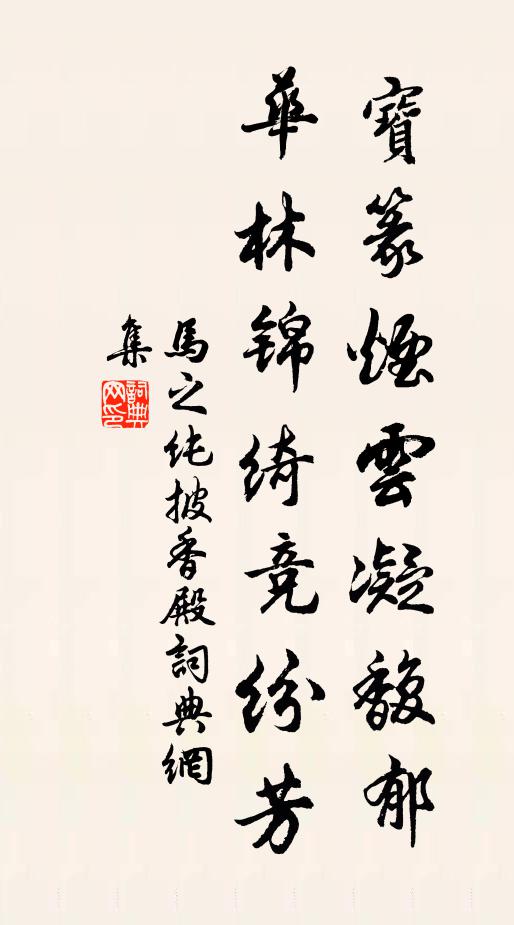 寶篆煙雲凝馥郁
華林錦綺競紛芳
馬之純披香殿詞典網
集
詞典
网印